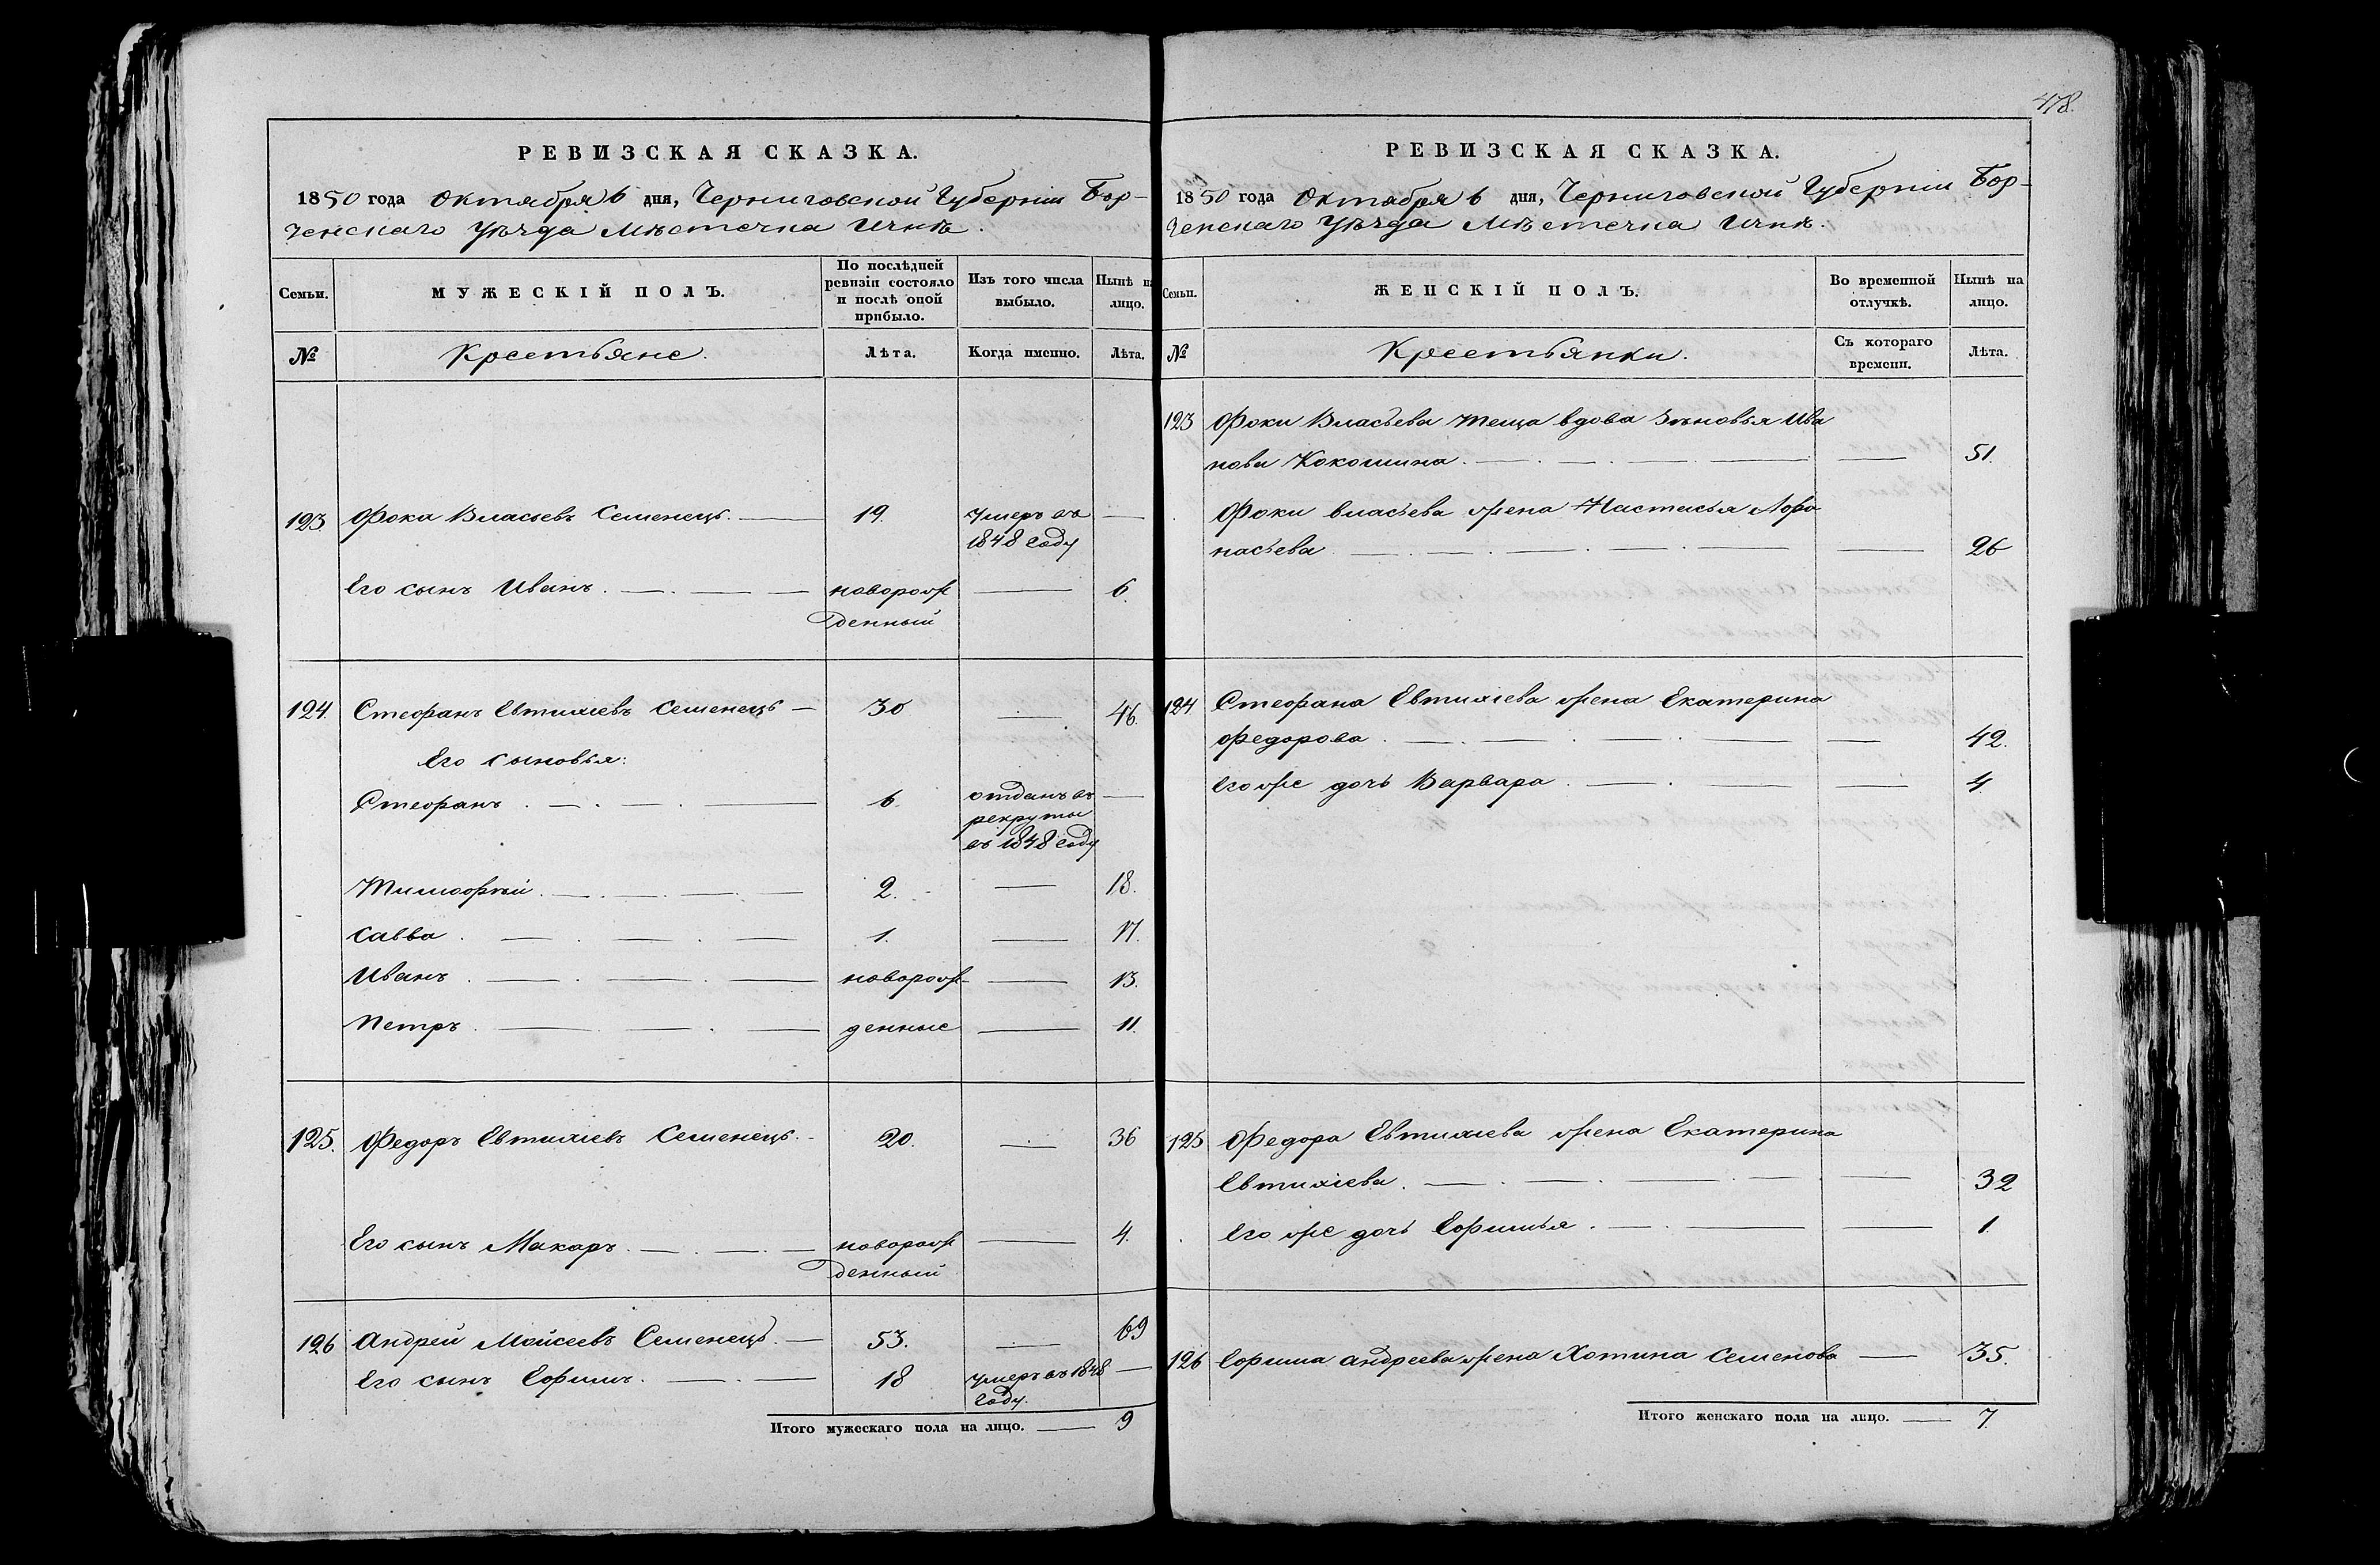 РЕВИЗСКАЯ СКАЗКА.
1850 года Октября 6 дня, Черниговской Губерніи Бор-
зенскаго Уѣзда Мѣстечка Ичнѣ.
Семьи.
МУЖЕСКІЙ ПОЛЪ.
По послѣдней ревизіи состояло и послѣ оной прибыло.
Изъ того числа выбыло.
Нынѣ на лицо.
№
Крестьяне.
Лѣта.
Когда именно.
Лѣта.
123 Фока Власьевъ Семенецъ. — 19. Умеръ въ —
1848 году
Его сынъ Иванъ. — новорож — 6.
денный
124. Стефанъ Евтихіевъ Семенецъ — 30 — 46.
Его сыновья:
Стефанъ. — 6. отданъ въ —
рекруты
въ 1848 году
Тимофѣй. — 2. — 18.
Савва. — 1. — 17.
Иванъ. — новорож- — 13.
Петръ. — денные — 11.
125. Федоръ Евтихіевъ Семенецъ. 20. — 36
Его сынъ Макаръ. — новорож — 4.
денный
126 Андрей Мойсеевъ Семенецъ. — 53. — 69
Его сынъ Ефимъ. — 18 умеръ въ 1848 —
году.
Итого мужескаго пола на лицо. — 9
478.
РЕВИЗСКАЯ СКАЗКА.
1850 года Октября 6 дня, Черниговской Губерніи Бор-
зенскаго Уѣзда Мѣстечка Ичнѣ.
Семьи.
ЖЕНСКІЙ ПОЛЪ.
Во временной отлучкѣ.
Нынѣ на лицо.
№
Крестьянки.
Съ котораго времени.
Лѣта.
123 Фоки Власьева теща вдова Зѣновья Ива
нова Кокошина. — 51.
Фоки Власьева жена Настасья Афа
насьева — 26
124 Стефана Евтихіева жена Екатерина
Федорова. — 42.
Его же дочь Варвара. — 4.
125 Федора Евтихіева жена Екатерина
Евтихіева. — 32
Его же дочь Ефимья. — 1
126 Ефима Андреева жена Хотина Семенова — 35.
Итого женскаго пола на лицо. — 7.